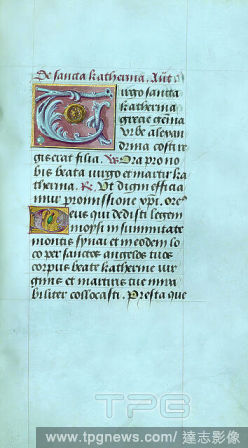 De sancta katherina. Añt
Virgo sancta
katherina
grecie gẽma
vrbe alexan
drina costi re
gis erat filia. Vs. Ora pro no
bis beata virgo et martir ka
therina. R. Ut digni efficia
mur promissione xp̃i. orẽ.
Deus qui dedisti legem
moysi in summitate
montis synai et in eodem lo
co per sanctos angelos tuos
corpus beate katherine vir
ginis et martiris tue mira
biliter collocasti. Presta que
TPG
www.tpgnews.com/ 達志影像